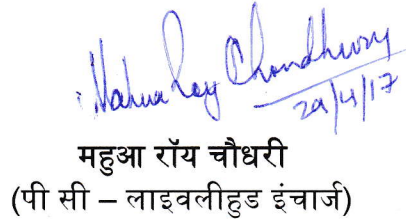 Mahua Roy Chondhury
29/4/17
महुआ रॉय चौधरी
(पी सी – लाइवलीहुड इंचार्ज)